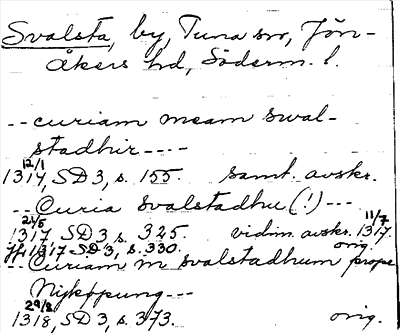 Svalsta, by, Tuna sn, Jön-
åkers hd, Söderm. l.
-- curiam meam swal-
stadhir ----
12/1
1317, SD 3, s. 155. samt. avskr.
-- Curia svalstadhu (!) ---
21/5 11/7
1317, SD 3, s. 325. vidim. avskr. 1317.
Jfr 1317 SD 3, s. 330. orig.
-- Curiam in svalstadhum prope
Nykøpung ---
29/8
1318, SD 3, s. 373. orig.